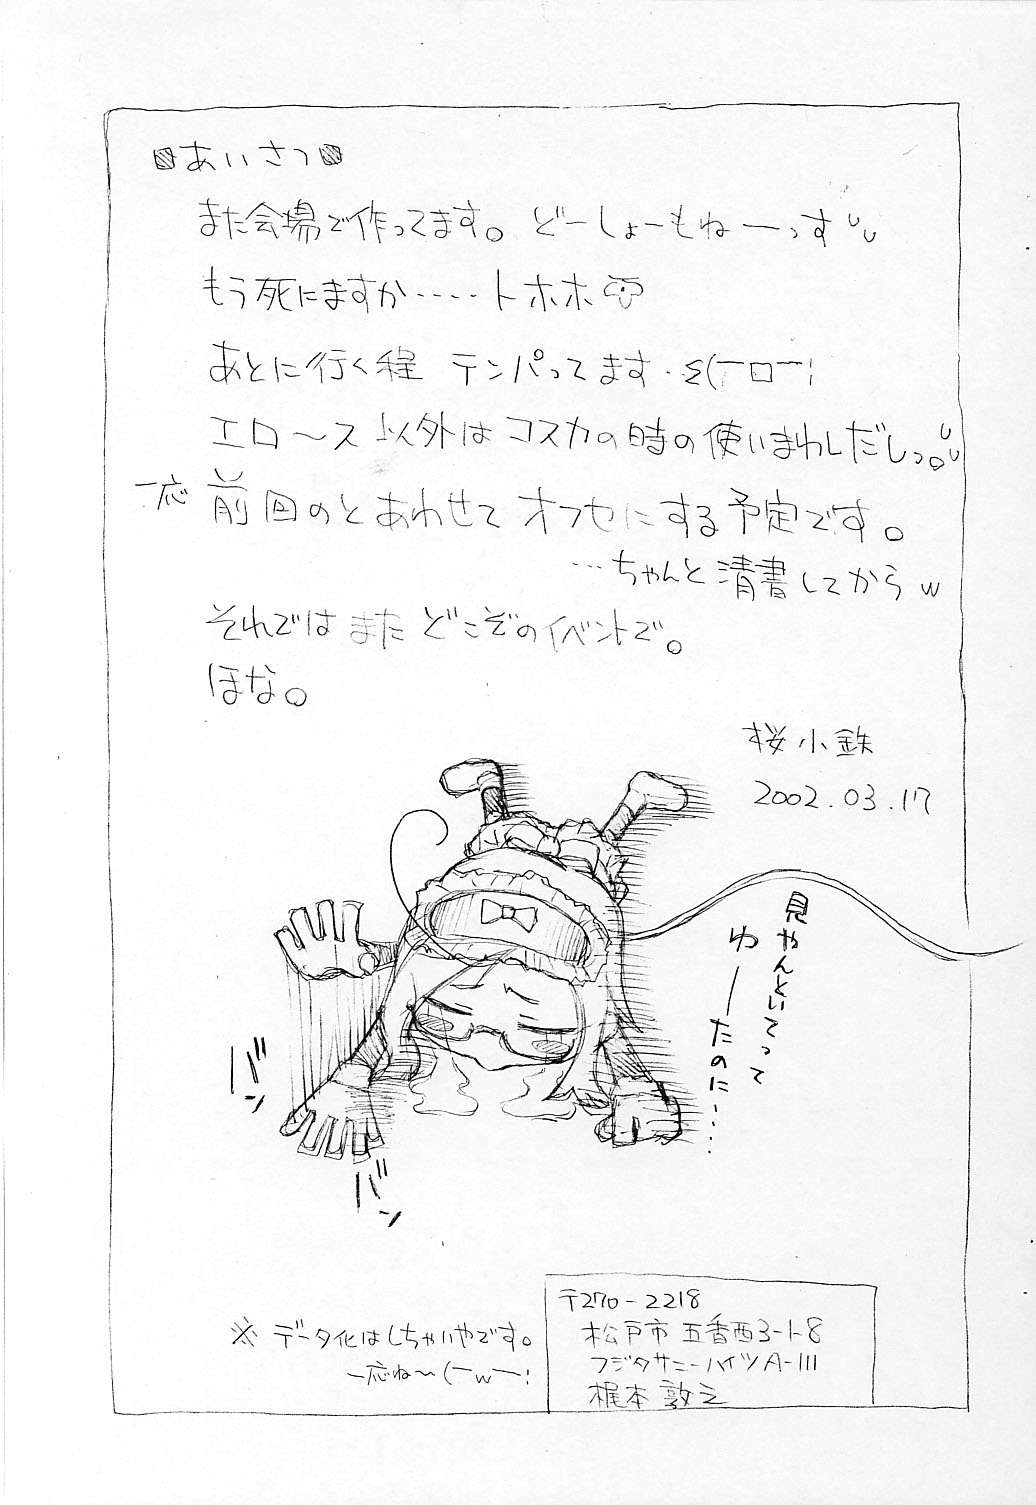 あいさつ
また会場で作ってます。どーしょーもねーっす
もう死にますか‥‥‥トホホ
あとに行く程 テンパってます・Σ(ーロー;
エロ〜ス以外はコスカの時の使いまわしだしっ。
一応 前回のとあわせてオフセにする予定です。
…ちゃんと清書してからw
それではまたどこぞのイベントで。
ほな。
桜小鉄
2002.03.17
見やんといてって
ゆーーたのに‥‥‥
バン
バン
※データ化はしちゃいやです。
一応ね〜(ーwー;
〒270-2218
松戸市五香西3-1-8
フジタサニーハイツA-111
梶本敦之